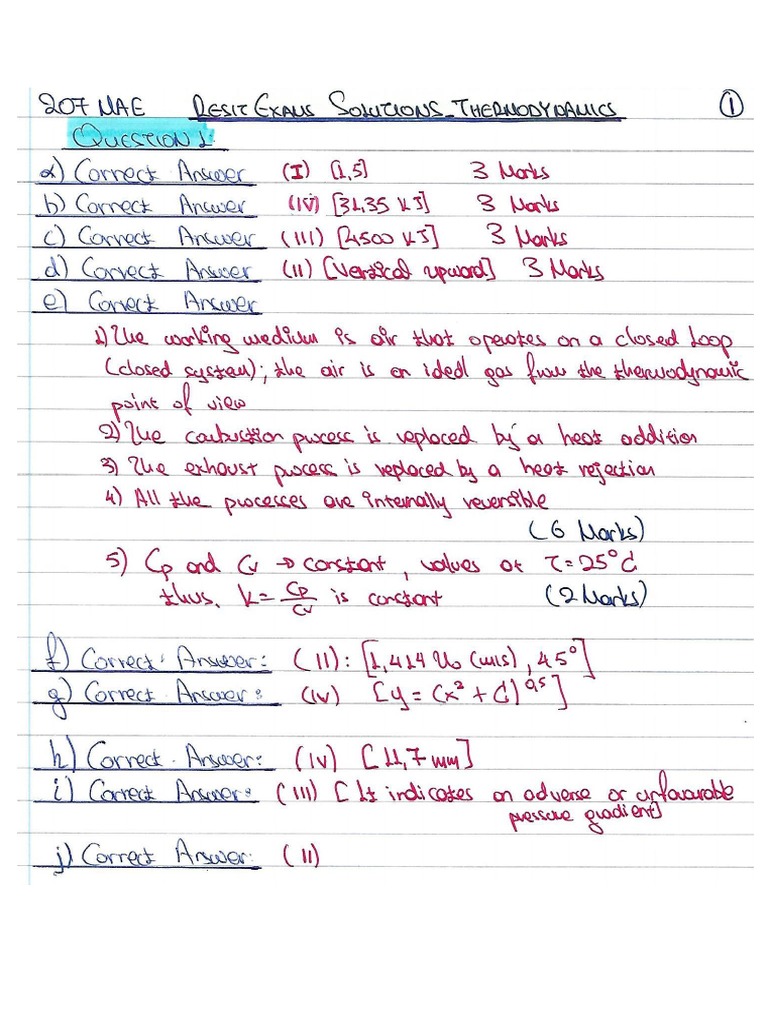 207 MAE RESIT EXAMS SOLUTIONS_THERMODYNAMICS 1
QUESTION 1:
a) Correct Answer (I) [1,5] 3 Marks
b) Correct Answer (IV) [31,35 kJ] 3 Marks
c) Correct Answer (III) [4500 kJ] 3 Marks
d) Correct Answer (II) [Vertical upward] 3 Marks
e) Correct Answer
1) The working medium is air that operates on a closed loop
(closed system); the air is an ideal gas from the thermodynamic
point of view
2) The combustion process is replaced by a heat addition
3) The exhaust process is replaced by a heat rejection
4) All the processes are internally reversible
(6 Marks)
5) Cp and Cv → constant, values at T=25°C
thus. k = Cp/Cv is constant (2 Marks)
f) Correct Answer: (II): [1,414 U₀ (m/s), 45°]
g) Correct Answer: (IV) [y = (x² + C)^0,5]
h) Correct Answer: (IV) [11,7 mm]
i) Correct Answer: (III) [It indicates an adverse or unfavourable
pressure gradient]
j) Correct Answer: (II)